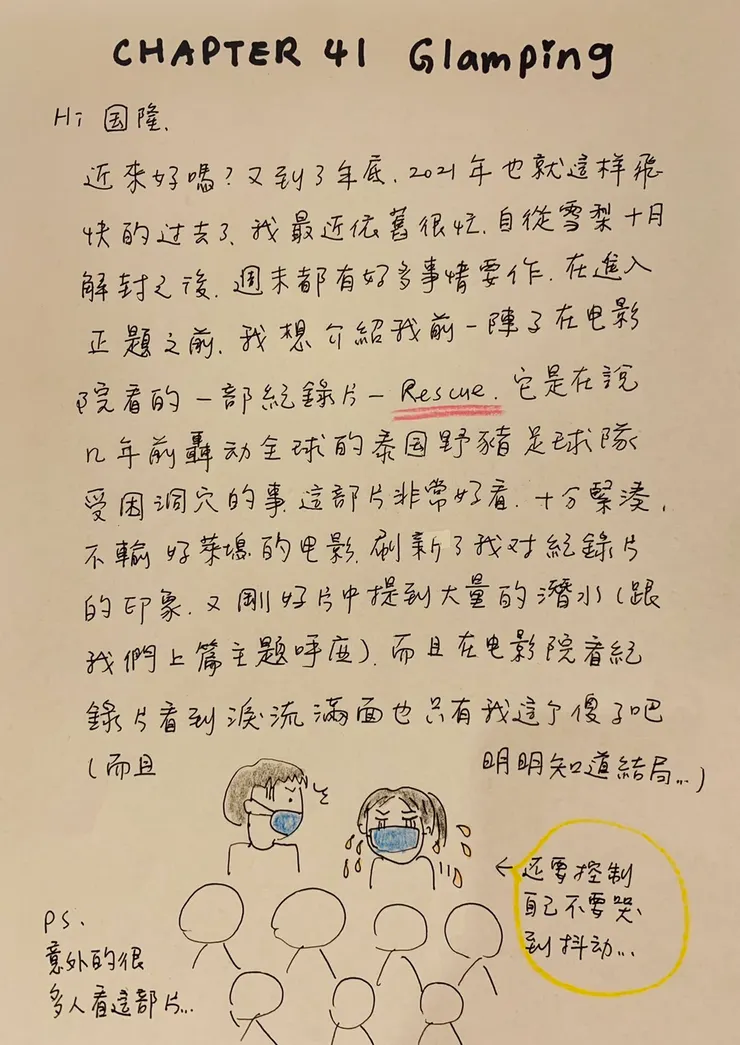 CHAPTER 41 Glamping
Hi 国隆,
近來好嗎?又到了年底,2021年也就這样飛
快的过去了,我最近依舊很忙,自從雪梨十月
解封之後,週末都有好多事情要作,在進入
正題之前,我想介紹我前一陣子在电影
院看的一部紀錄片-Rescue.它是在說
几年前轟动全球的泰国野豬足球隊
受困洞穴的事,這部片非常好看,十分緊湊,
不輸好萊塢的电影,刷新了我对紀錄片
的印象,又剛好片中提到大量的潛水(跟
我們上篇主題呼应),而且在电影院看紀
錄片看到淚流滿面也只有我這个傻子吧
(而且 明明知道結局...)
←还要控制
自己不要哭
到抖动...
PS.
意外的很
多人看這部片...